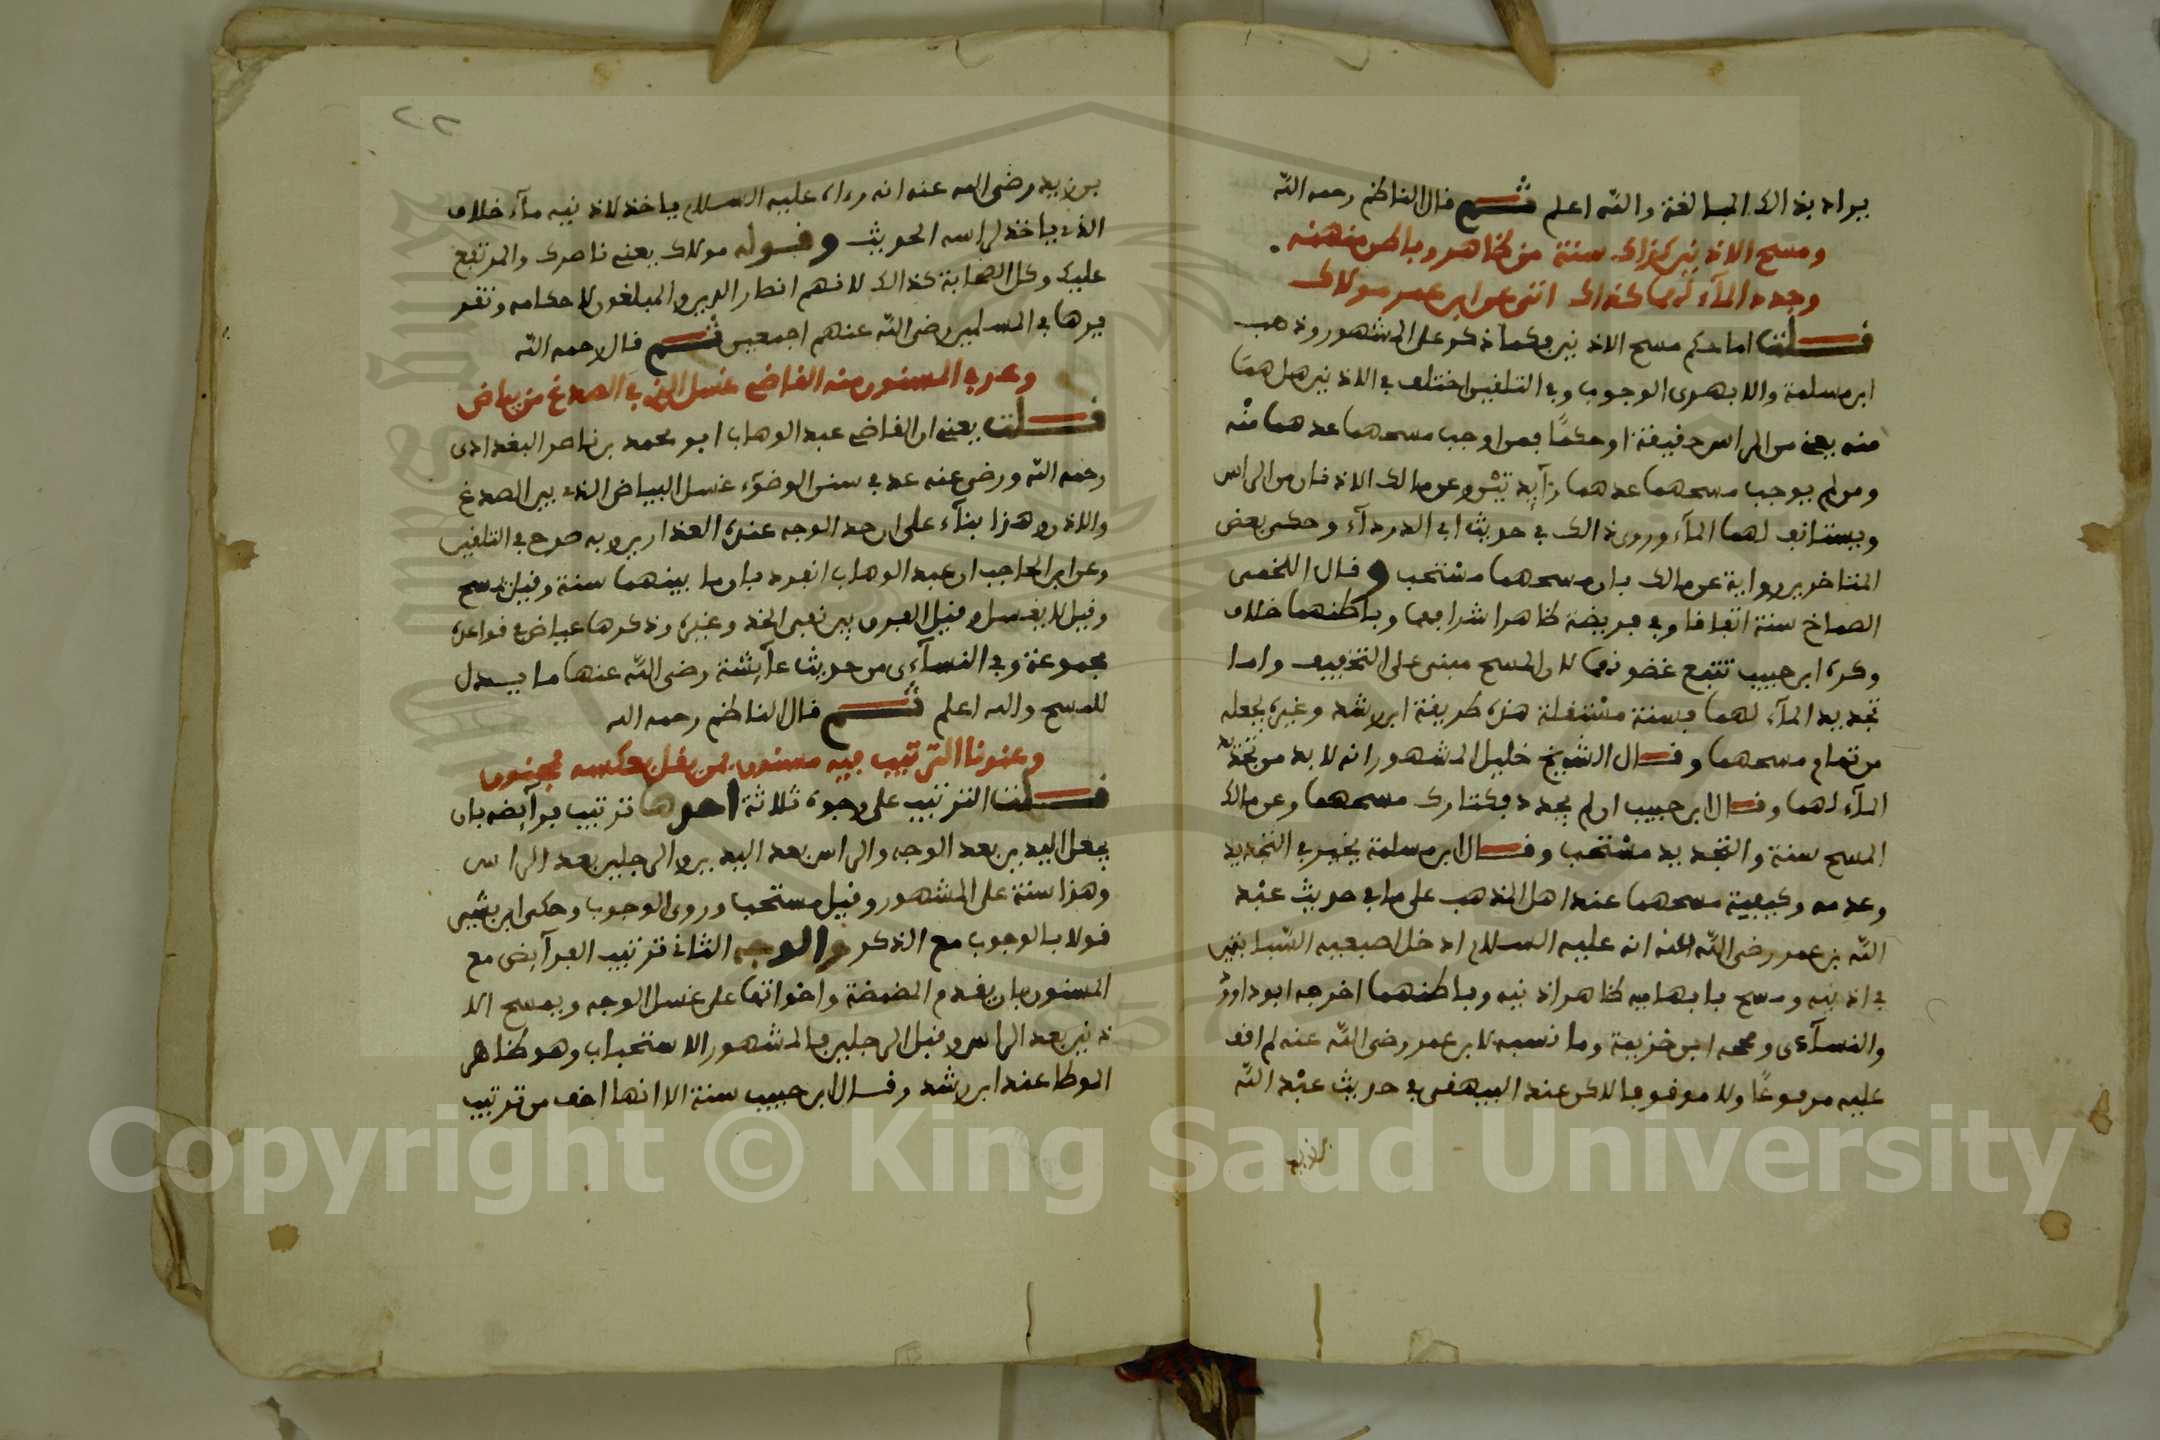 يراد بذالك المبالغة والله اعلم ثم قال الناظم رحمه الله
ومسح الاذنين كذاك سنة من ظاهر وباطن منهنه
وجدد المآء لها كذاك اتى عن ابن عمر مولاك
قلت اما حكم مسح الاذنين فكما ذكر على المشهور وذهب
ابن مسلمة والابهرى الوجوب وفي التلقين اختلف في الاذنين هل هما
منه يعني من الراس حقيقة او حكمًا فمن اوجب مسحهما عدهما منه
ومن لم يوجب مسحهما عدهما زآيدتين وعن مالك الاذنان من الراس
ويستانف لهما المآء وروى ذالك في حديث ابي الدردآء وحكى بعض
المتاخرين رواية عن مالك بان مسحهما مستحب وقال اللخمى
الصماخ سنة اتفاقا وفي فريضة ظاهر اشرافهما وباطنهما خلاف
وكره ابن حبيب تتبع غضونهما لان المسح مبنى على التخفيف واما
تجديد المآء لهما فسنة مستقلة هذه طريقة ابن رشد وغيره يجعله
من تمام مسحهما وقال الشيخ خليل المشهور انه لا بد من تجديد
المآء لهما وقال ابن حبيب ان لم يجدد فكتارك مسحهما وعن مالك
المسح سنة والتجديد مستحب وقال ابن مسلمة يخير في التجديد
وعدمه وكيفية مسحهما عند اهل المذهب على ما في حديث عبد
الله بن عمر رضى الله عنه انه عليه السلام ادخل اصبعيه السبابتين
في اذنيه ومسح بابهاميه ظاهر اذنيه وباطنهما اخرجه ابو داوود
والنسآءى وصححه ابن خزيمة وما نسبه لابن عمر رضى الله عنه لم اقف
عليه مرفوعًا ولا موقوفا لاكن عند البيهقى في حديث عبد الله
٢٢
بن زيد رضى الله عنه انه رءاه عليه السلام ياخذ لاذنيه مآء خلاف
الذى ياخذ لراسه الحديث وقوله مولاك يعني ناصرك والمرتفع
عليك وكل الصحابة كذالك لانهم انصار الدين والمبلغون لاحكامه وتقر
يرها في المسلمين رضى الله عنهم اجمعين ثم قال رحمه الله
وعد في المسنون منه القاضي غسل الذي في الصدغ من بياض
قلت يعني ان القاضي عبد الوهاب ابو محمد بن ناصر البغدادى
رحمه الله ورضى عنه عد في سنن الوضوء غسل البياض الذي بين الصدغ
والاذن وهذا بنآء على ان حد الوجه عنده العذارين وبه صرح في التلقين
وعن ابن الحاجب ان عبد الوهاب انفرد بان ما بينهما سنة وقيل يمسح
وقيل لا يغسل وقيل الفرق بين نقى الخد وغيره وذكرها عياض في قواعده
مجموعة وفي النسآءى من حديث عآيشة رضى الله عنها ما يدل
للمسح والله اعلم ثم قال الناظم رحمه الله
وعندنا الترتيب فيه مسنون من يقل بعكسه مجنون
قلت الترتيب على وجوه ثلاثة احدها ترتيب فرآيضه بان
يجعل اليدين بعد الوجه والراس بعد اليدين والرجلين بعد الراس
وهذا سنة على المشهور وقيل مستحب وروى الوجوب وحكى ابن بشير
قولا بالوجوب مع الذكر والوجه الثاني ترتيب الفرآيض مع
المسنون بان يقدم المضمضة واخواتها على غسل الوجه ويمسح الا
ذنين بعد الراس وقبل الرجلين فالمشهور الاستحباب وهو ظاهر
الموطا عند ابن رشد وقال ابن حبيب سنة الا انها اخف من ترتيب
Copyright © King Saud University